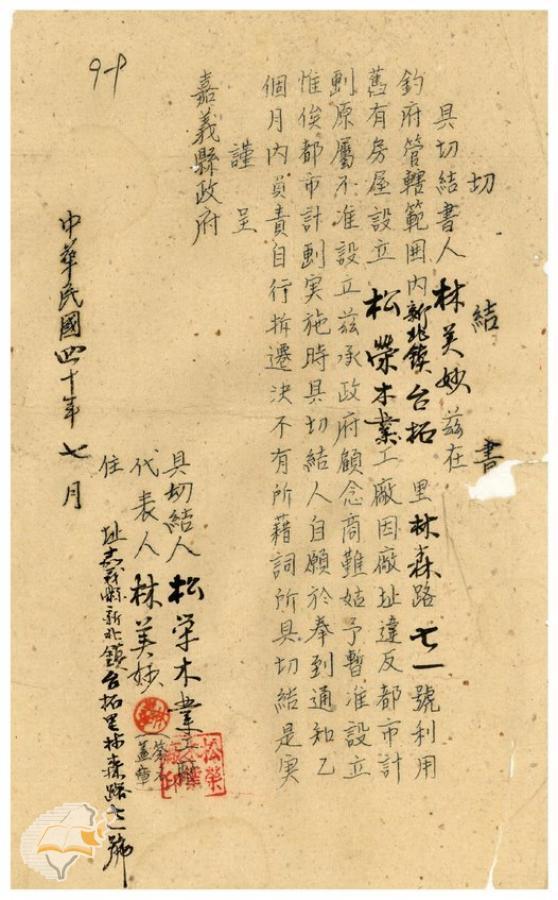 切結書
具切結書人林美妙茲在
鈞府管轄範圍内新北鎮台拓里林森路七一號利用
舊有房屋設立松榮木業工廠因廠址違反都市計
劃原屬不准設立茲承政府顧念商難姑予暫准設立
惟俟都市計劃實施時具切結人自願於奉到通知乙
個月内負責自行拆遷決不有所藉詞所具切結是实
謹呈
嘉義縣政府
具切結人松荣木業工廠
代表人林美妙
住址嘉義縣新北鎮台拓里林森路七一號
中華民國四十年七月
9-9
松榮木業廠印